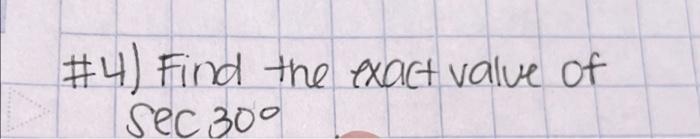 #4) Find the exact value of
sec 30°